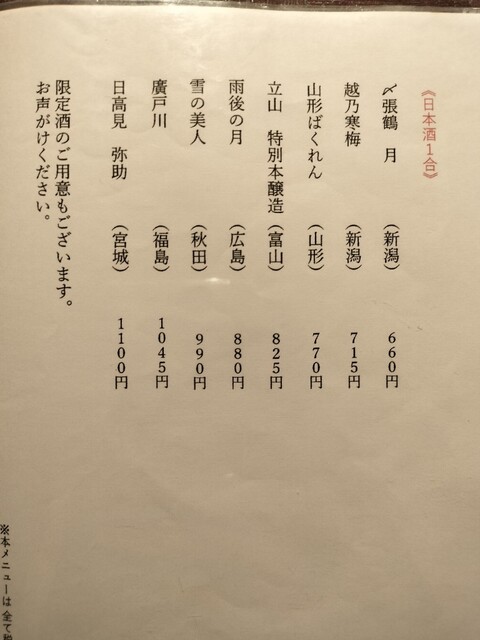 《日本酒1合》
〆張鶴 月 (新潟) 660円
越乃寒梅 (新潟) 715円
山形ばくれん (山形) 770円
立山 特別本醸造 (富山) 825円
雨後の月 (広島) 880円
雪の美人 (秋田) 990円
廣戸川 (福島) 1045円
日高見 弥助 (宮城) 1100円
限定酒のご用意もございます。
お声がけください。
※本メニューは全て税